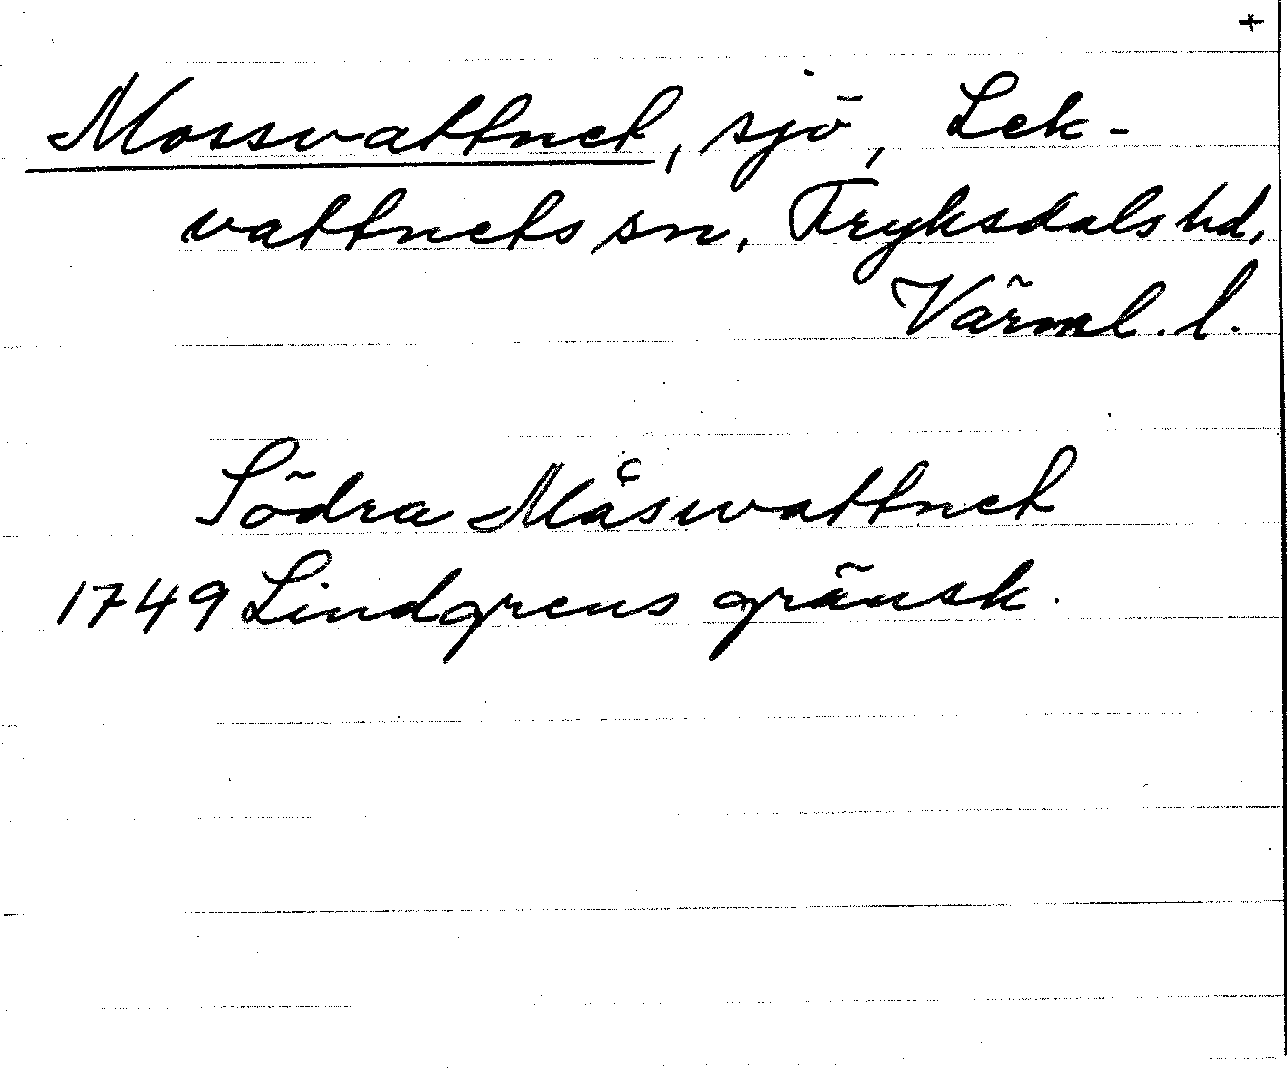 +
Mossvattnet, sjö, Lek-
vattnets sn, Fryksdals hd,
Värml. l.
Södra Måswattnet
1749 Lindgrens gränsk.